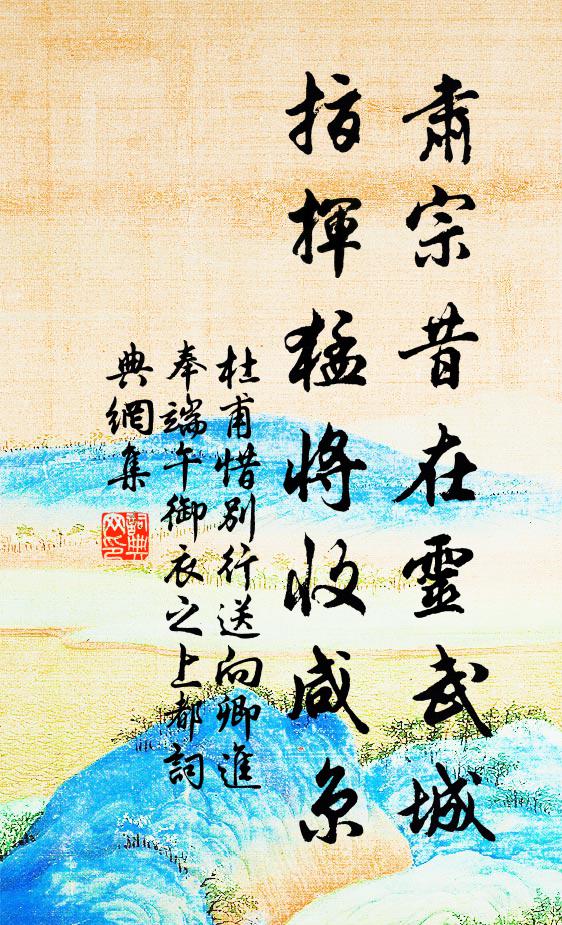 肅宗昔在靈武城
指揮猛將收咸京
杜甫惜別行送向卿進
奉端午御衣之上都詞
典網集
詞典
网印